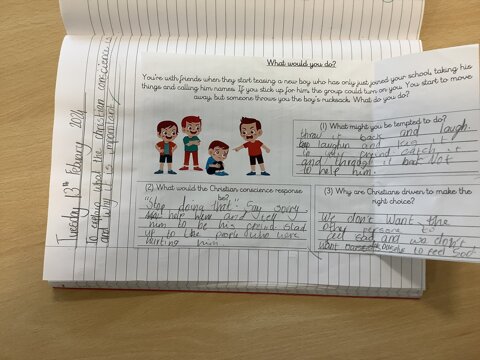 Tuesday 13th February 2024
To explain what the christian conscience is
and why it is important.
What would you do?
You're with friends when they start teasing a new boy who has only just joined your school, taking his
things and calling him names. If you stick up for him the group could turn on you. You start to move
away, but someone throws you the boy's rucksack. What do you do?
(1) What might you be tempted to do?
throw it back and laugh.
laughin and
to my friend catch it
and it but not
to help him.
(2) What would the Christian conscience response
be?
"Stop doing that" Say sorry
help him and
him to be his friend stad
up to the people who were
him
(3) Why are Christians driven to make the
right choice?
We don't want the
other persone to
feel sad and we don't
want to feel sad